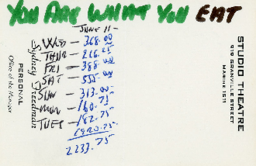 YOU ARE WHAT YOU EAT
JUNE 11 -
WED — 368.00
THUR — 216.25
FRI — 388.00
SAT — 555.00
SUN — 313.00
MON — 160.75
TUES — 182.75
2233.75
STUDIO THEATRE
919 GRANVILLE STREET
MARINE 1511
Sydney Freedman
PERSONAL
Office of the Manager